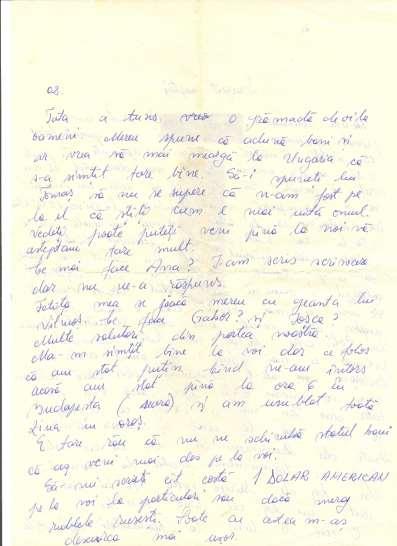 08.
Tata a tuns vreo o grămadă de vite
oameni. Mereu spune că adună bani și
ar vrea să mai meargă la Ungaria că
s-a simțit tare bine. Să-i spuneți lui
Tomas să nu se supere că n-am fost pe
la el că știți cum e mai uită omul.
Vedeți poate puteți veni pînă la noi vă
așteptăm tare mult.
Ce mai face Ana? I-am scris scrisoare
dar nu ne-a răspuns.
Fetița mea se joacă mereu cu geanta lui
Vilmos. Ce face Gabor? și Josca?
Multe salutări din partea noastră.
M-am simțit bine la voi dar ce folos
că am stat puțin, cînd ne-am întors
acasă am stat pînă la ora 6 în
Budapesta (seara), și am umblat toată
ziua în oraș.
E tare rău că nu ne schimbă statul bani
că aș veni mai des pe la voi.
Să-mi scrieți cît costă 1 DOLAR AMERICAN
pe la voi la particulari sau dacă merg
rublele rusești. Poate cu astea m-aș
descurca mai ușor.